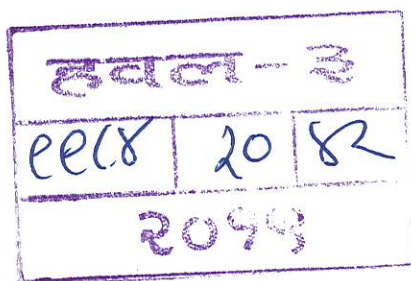 हवल-३
११८४ २० ४२
२०१५